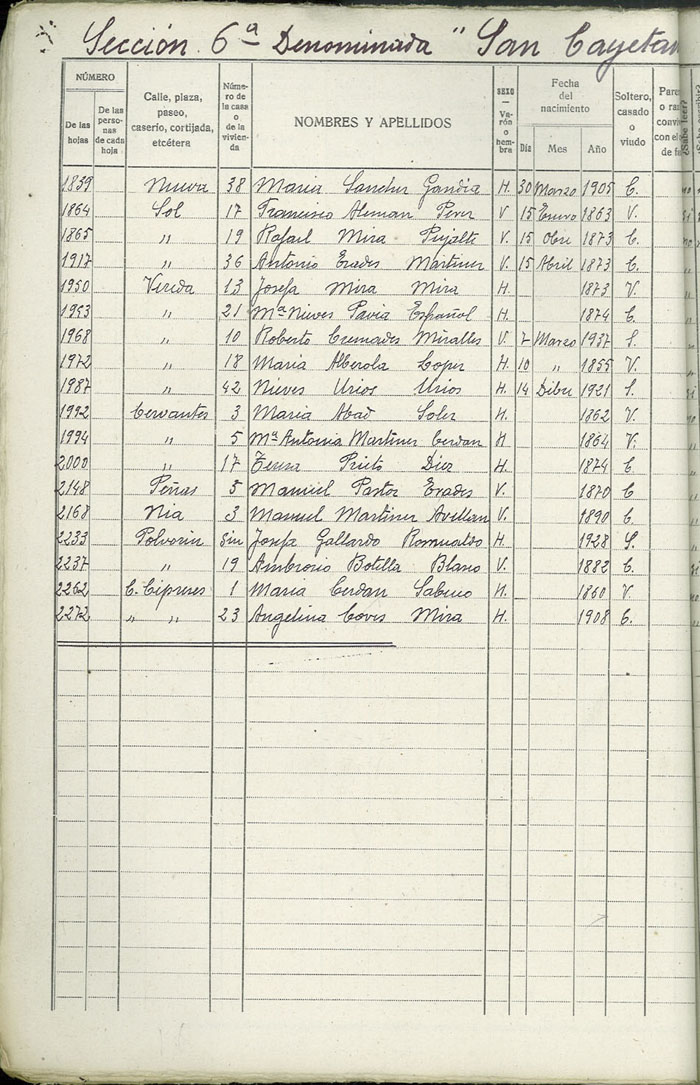 Sección 6ª Denominada "San Cayetan
NÚMERO
De las hojas
De las personas de cada hoja
Calle, plaza, paseo, caserio, cortijada, etcétera
Número de la casa o de la vivienda
NOMBRES Y APELLIDOS
SEXO — Varón o hembra
Fecha del nacimiento
Día Mes Año
Soltero, casado o viudo
1839 Nueva 38 Maria Sanchez Gandia H. 30 Marzo 1905 C.
1864 Sol 17 Francisco Aleman Perez V 15 Enero 1863 V.
1865 " 19 Rafael Mira Pujalte V. 15 Obre 1873 C.
1917 " 36 Antonio Erades Martinez V. 15 Abril 1873 C.
1950 Vereda 13 Josefa Mira Mira H. 1873 V.
1953 " 21 Mª Nieves Pavia Español H. 1874 C.
1968 " 10 Roberto Cremades Miralles V. 7 Marzo 1937 S.
1972 " 18 Maria Alberola Lopez H. 10 " 1855 V.
1987 " 42 Nieves Urios Urios H. 14 Dibre 1921 S.
1992 Cervantes 3 Maria Abad Soler H. 1862 V.
1994 " 5 Mª Antonia Martinez Cerdan H 1864 V.
2000 " 17 Teresa Prieto Diez H. 1874 C.
2148 Peñas 5 Manuel Pastor Erades V. 1870 C
2168 Nia 3 Manuel Martinez Avellan V. 1890 C.
2233 Polvorin Sin Josefa Gallardo Romualdo H. 1928 S.
2237 " 19 Ambrosio Botella Blano V. 1882 C.
2262 C. Cipreses 1 Maria Cerdan Sabuco H. 1860 V.
2272 " " 23 Angelina Coves Mira H. 1908 C.